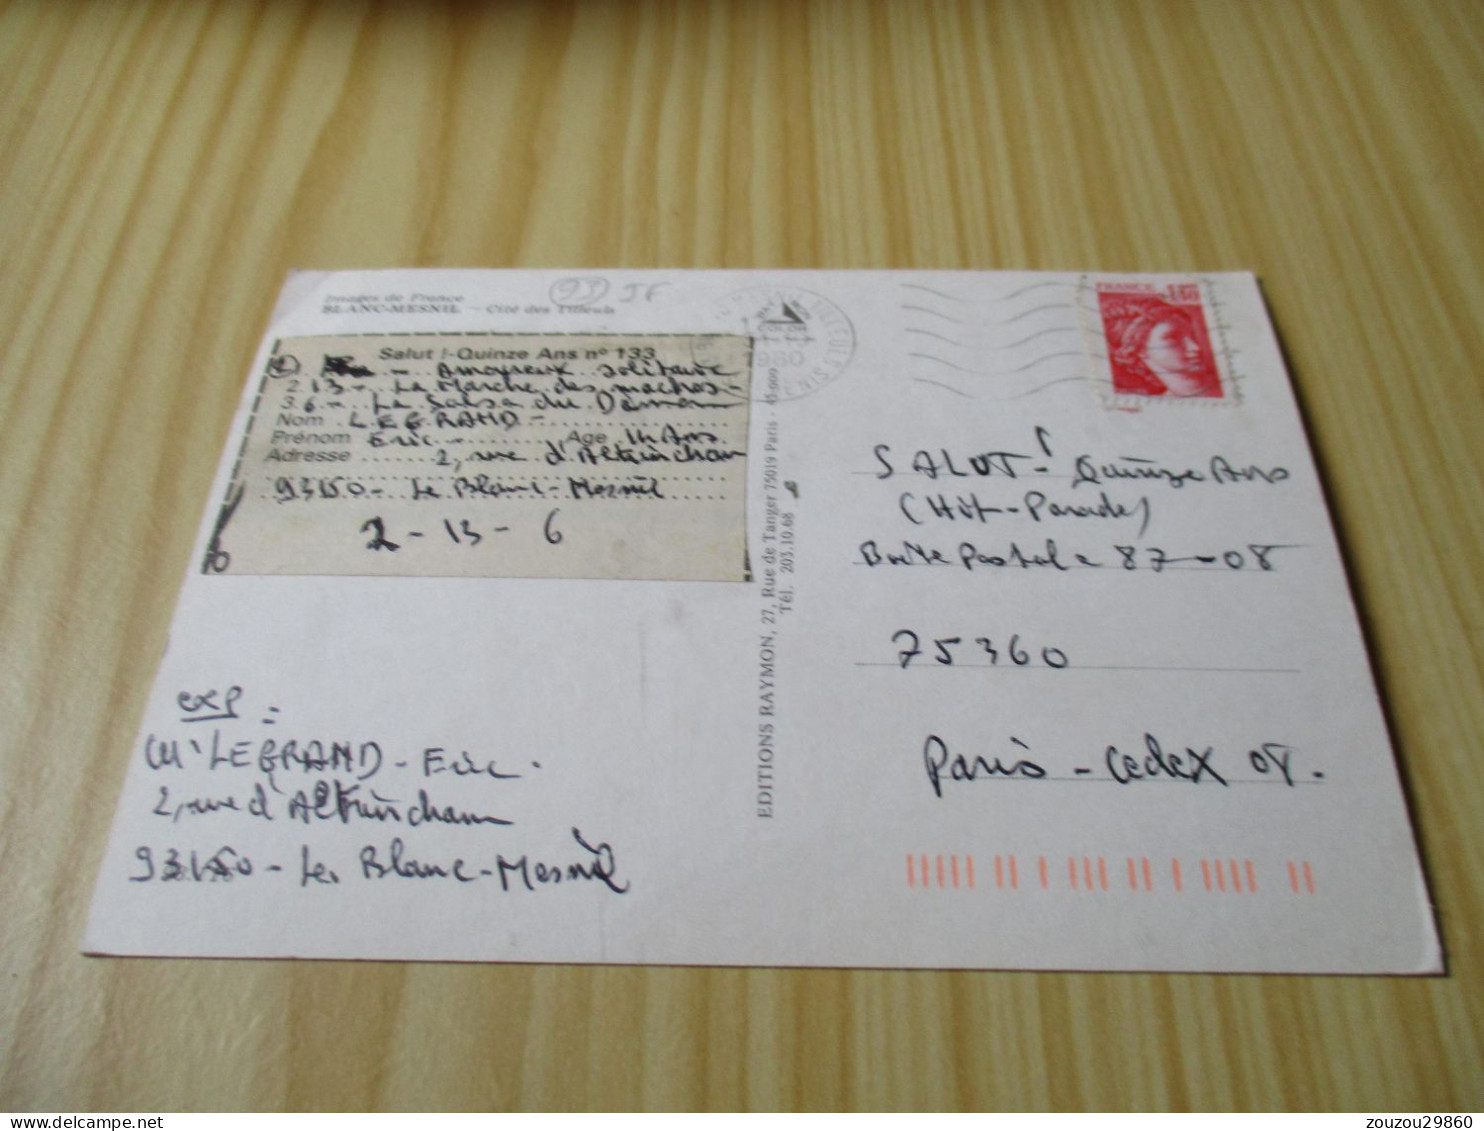 Images de France
BLANC-MESNIL — Cité des Tilleuls
93 JF
Salut !-Quinze Ans n° 133
- Amoureux solitaire
2. 13 - La Marche des machos -
3. 6 - La Salsa du Démon
Nom LEGRAND -
Prénom Eric - Age 14 Ans
Adresse 2, rue d'Altrincham
93150 - Le Blanc-Mesnil
2 - 13 - 6
exp :
Mr LEGRAND - Eric -
2, rue d'Altrincham
93150 - Le Blanc-Mesnil
EDITIONS RAYMON, 27, Rue de Tanger 75019 Paris - 45.000
Tél. 203.10.68
1980
FRANCE
SALUT ! Quinze Ans
(Hit-Parade)
Boîte Postale 87-08
75360
Paris - Cedex 08.
zouzou29860